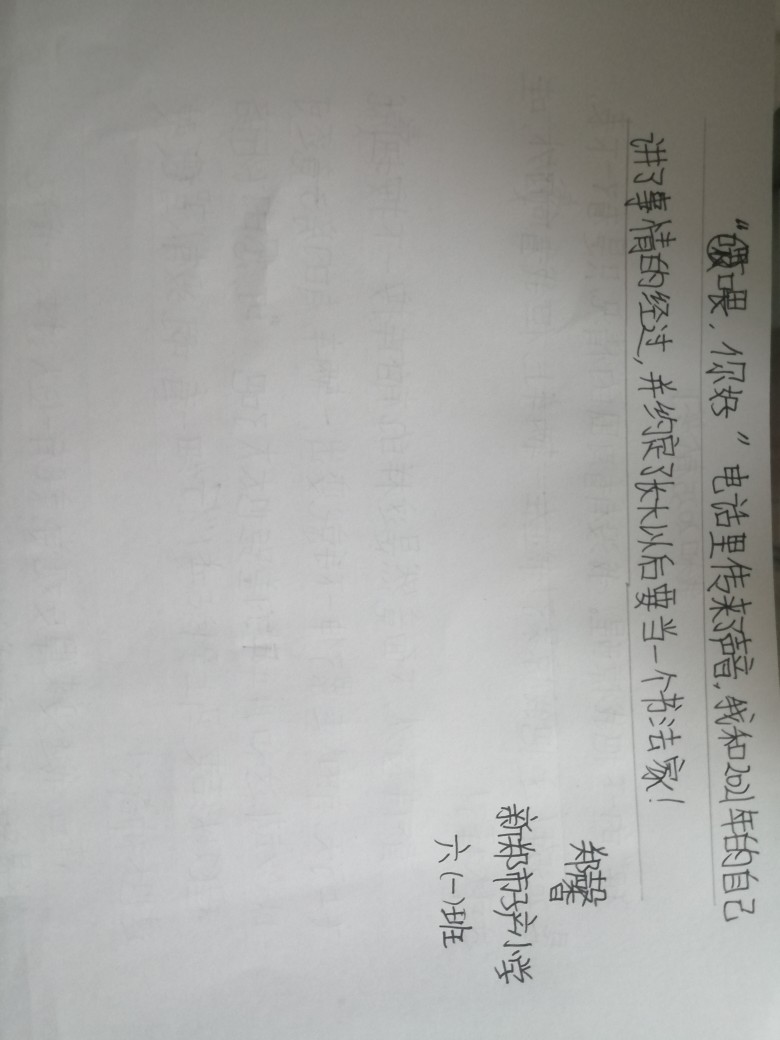 “喂，你好”电话里传来了声音，我和2021年的自己
讲了事情的经过，并约定了长大以后要当一个书法家！
郑馨
新郑市小学
六(一)班